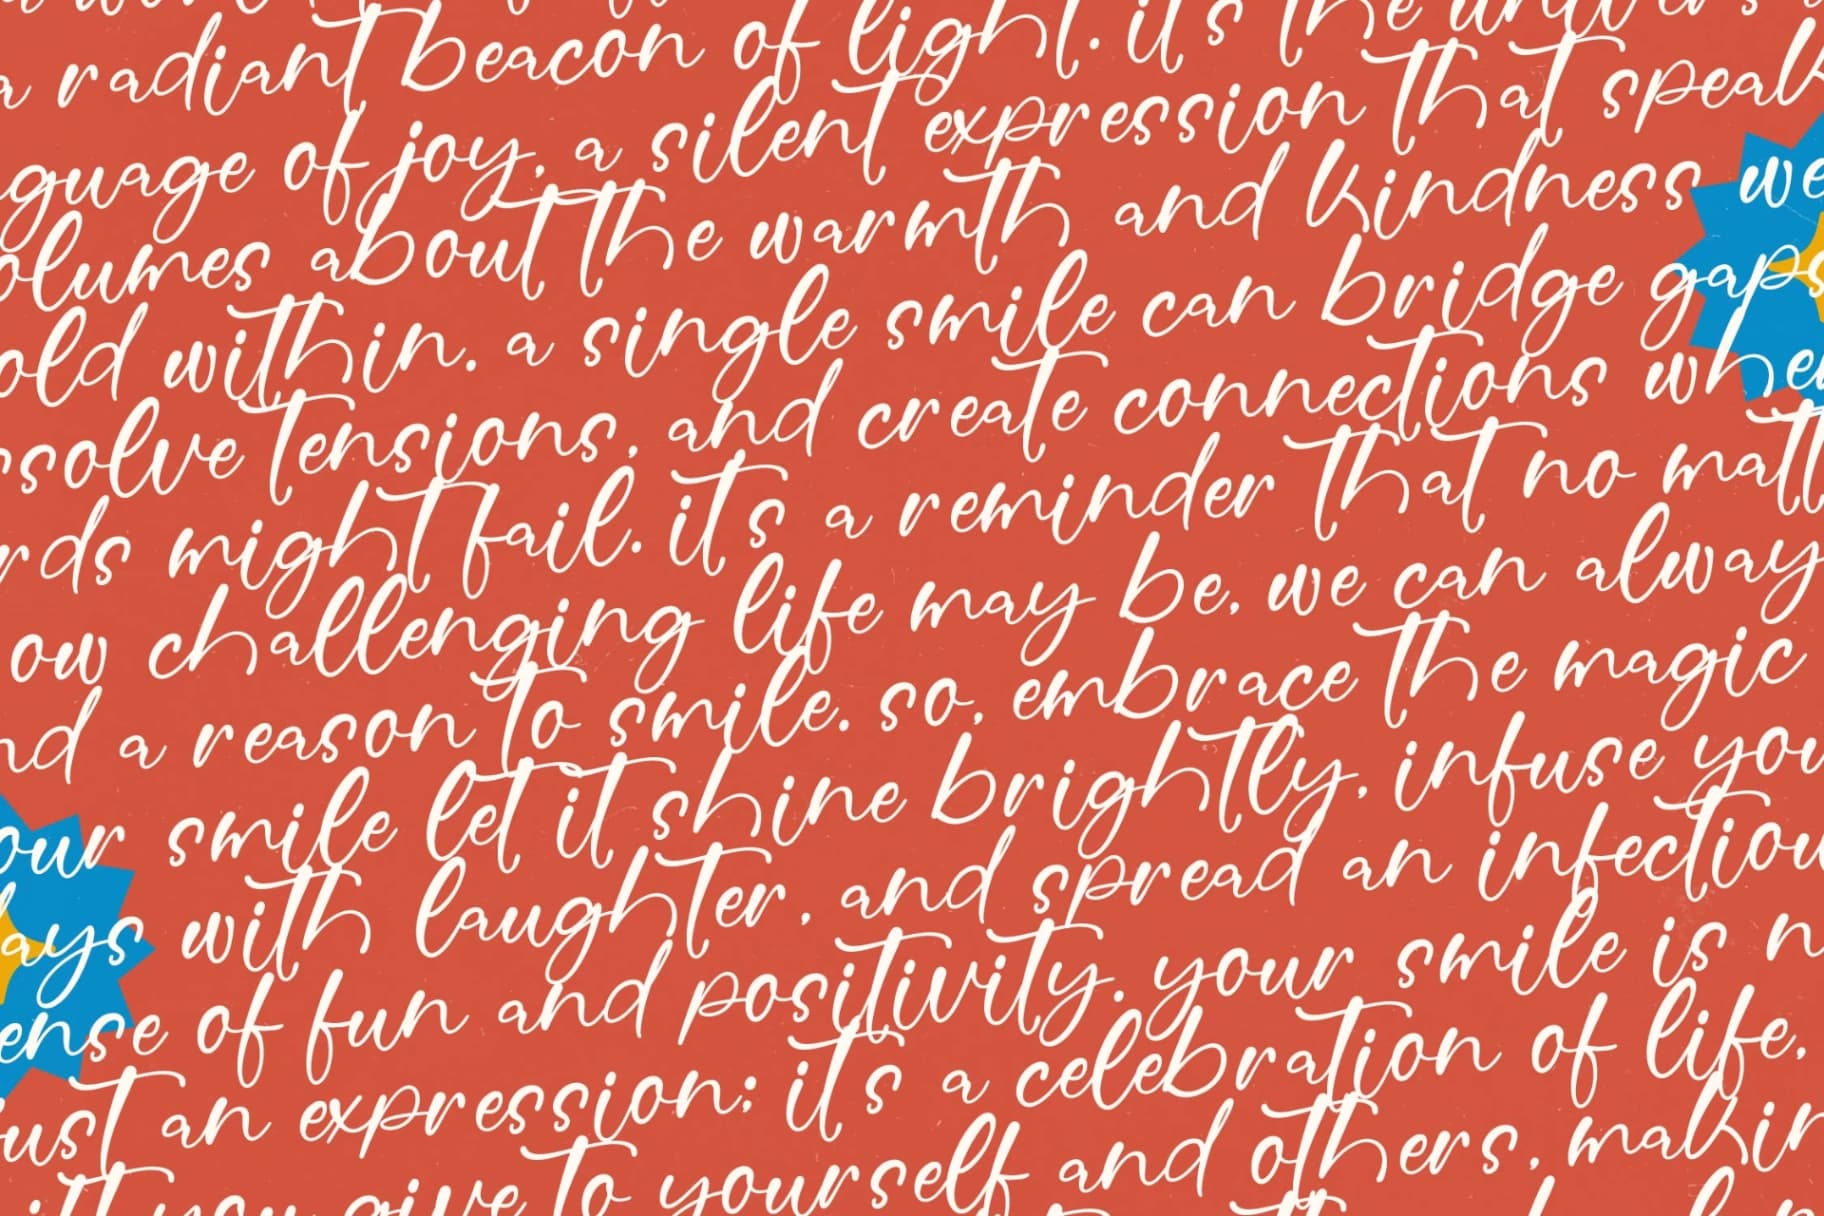 a radiant beacon of light. it's the univers
guage of joy, a silent expression that speak
olumes about the warmth and kindness we
old within. a single smile can bridge gaps
ssolve tensions, and create connections when
rds might fail. it's a reminder that no matt
ow challenging life may be, we can always
nd a reason to smile. so, embrace the magic
our smile let it shine brightly, infuse you
days with laughter, and spread an infectiou
ense of fun and positivity. your smile is n
just an expression; it's a celebration of life,
you give to yourself and others, makin